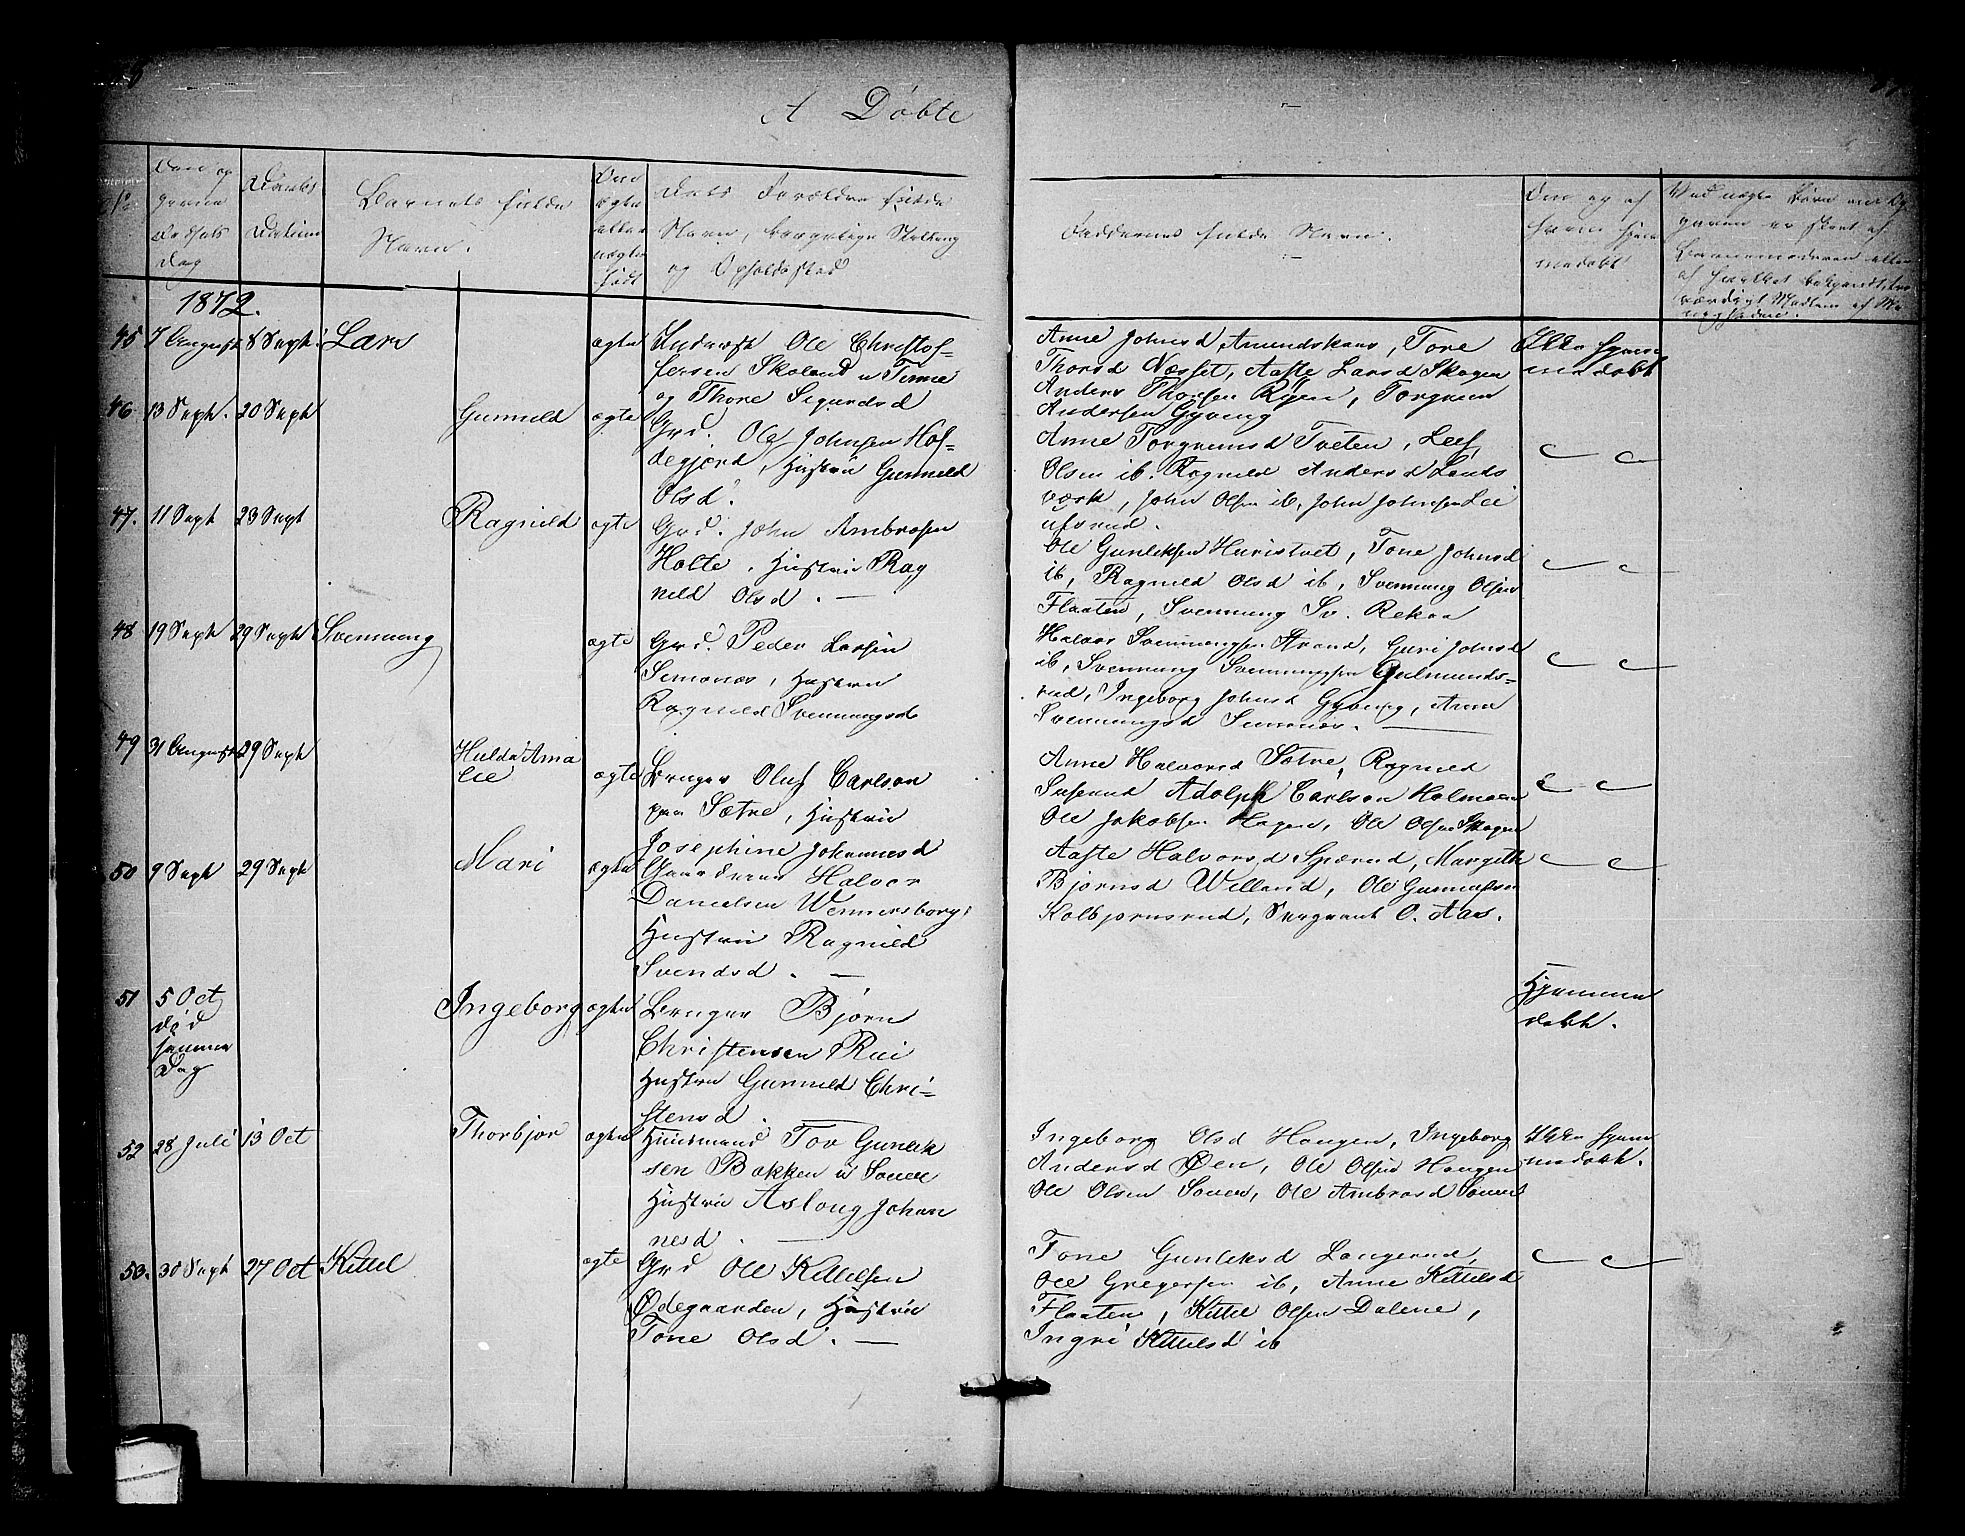 A Døbte
No
Aar og
hvern
Fødsels
Dag
Daabs
Datum
Barnets fulde
Navn.
Om
ægte
eller
uægte
født
Dets Forældres fulde
Navn, borgerlige Stilling
og Opholdssted
Faddernes fulde Navn.
Om og af
hvem hjem-
medøbt
1872.
45 7 August 8 Sept. Lars ægte Inderst Ole Christof-
fersen Skoland u Tinne
og Thore Sigurdsd
Anne Johnsd Amundskaas, Tore
Thorsd Næset, Aaste Larsd Skogen
Anders Thorsen Ryen, Torgrim
Andersen Gyving
Ikke hjem-
medøbt
46 13 Sept. 20 Sept Gunnild ægte Grd. Ole Johnsen Hof-
degjerd, Hustru Gunnild
Olsd.
Anne Torgrimsd Tveten, Leif
Olsen ib. Ragnild Andersd Lands
værk, John Olsen ib, John Johnsen Lei
ufsrud.
47. 11 Sept 23 Sept Ragnild ægte Grd. John Ambrosen
Holte, Hustru Rag
nild Olsd. —
Ole Gunleksen Huristvet, Tone Johnsd
ib, Ragnild Olsd ib, Svennung Olsen
Flaaten, Svennung Sv. Rekaa
48 19 Sept 29 Sept Svennung ægte Grd. Peder Larsen
Semonær, Hustru
Ragnild Svennungsd
Halvor Svennungsen Strand, Guri Johnsd
ib, Svennung Svennungsen Gulmunds-
rud, Ingeborg Johnsd Gyving, Anne
Svennungsd Semnær. —
49 31 August 29 Sept Hulda Ama
lie ægte Bruger Oluf Carlson
paa Sætre, Hustru
Josephine Johannesd
Anne Halvorsd Sætre, Ragnild
Adolph Carlson Holmaen
Ole Jakobsen Hagen, Ole Olsen Skogen
50 9 Sept 29 Sept Mari ægte Gaardeier Halvor
Danielsen Wennersborg,
Hustru Ragnild
Svendsd. —
Aaste Halvorsd Sperud, Margith
Bjørnsd Willand, Ole Gunnulfsen
Kolbjørnsrud, Sergeant O. Aas.
51 5 Oct
død
samme
Dag
Ingeborg ægte Bruger Bjørn
Christensen Rui
Hustru Gunnild Chri-
stensd.
Hjemme
døbt.
52 28 Juli 13 Oct Thorbjør ægte Huusmand Tov Gunlek
sen Bakken u Souer
Hustru Asloug Johan
nesd. —
Ingeborg Olsd Haugen, Ingeborg
Andersd Øen, Ole Olsen Haugen
Ole Olsen Souer, Ole Ambrosd Souer
Ikke hjem
medøbt.
53. 30 Sept 27 Oct Kittel ægte Grd Ole Kittelsen
Ødegaarden, Hustru
Tone Olsd. —
Tone Gunleksd Langerud,
Ole Gregersen ib, Anne Kittelsd
Flaaten, Kittel Olsen Dalene,
Ingri Kittelsd ib